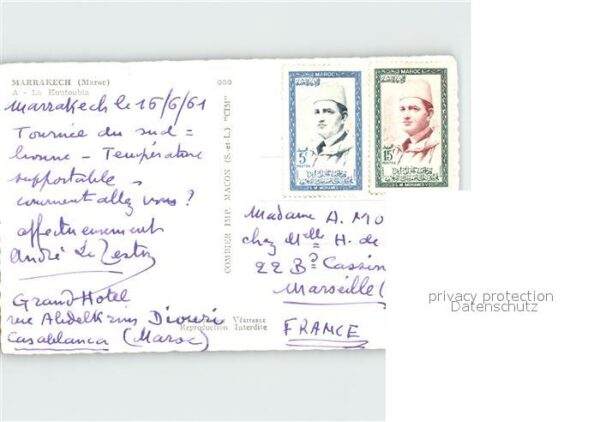 MARRAKECH (Maroc)
A - La Koutoubia
Marrakech le 16/6/61
Tournée du sud =
bonne - Température
supportable,
comment allez vous ?
affectueusement
André
Grand Hotel
rue Abdelkrim Diouri
Casablanca (Maroc)
Reproduction Interdite
COMBIER IMP. MACON (S.-et-L.) "CIM"
MAROC
5F
POSTES
S.M. MOHAMMED
MAROC
15F
POSTES
S.M. MOHAMMED
Madame A. MO
chez Melle H. de
22 Bd Cassin
Marseille (
FRANCE
privacy protection
Datenschutz